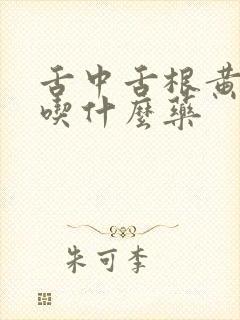 舌中舌根黄
喫什麼藥
朱可李